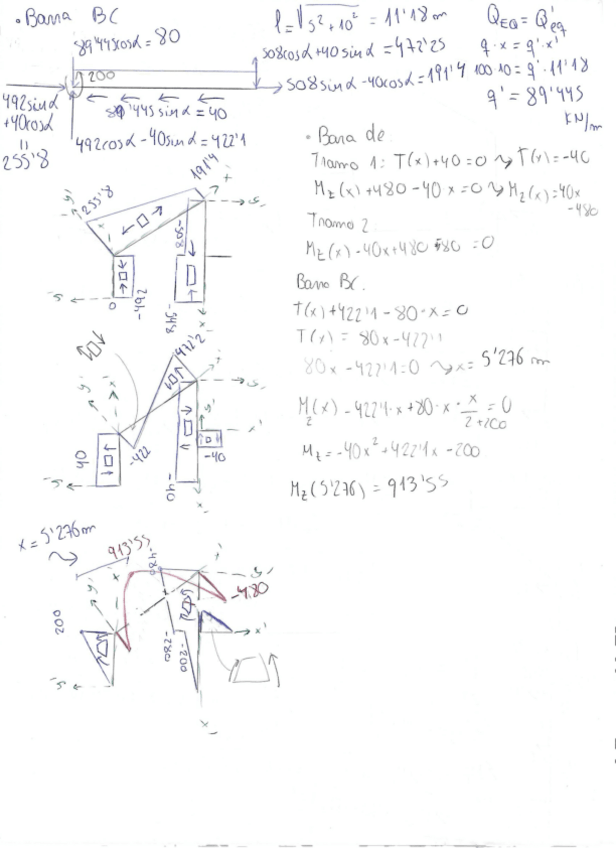 • Barra BC
l = √5² + 10² = 11'18 m
Q_EQ = Q'_eq
q · x = q' · x'
100·10 = q' · 11'18
q' = 89'445
KN/m
89'445cosα = 80
508cosα + 40 sinα = 472'25
200
508sinα - 40cosα = 191'4
492sinα
+40cosα
=
255'8
89'445 sinα = 40
492cosα - 40sinα = 422'1
• Barra de
Tramo 1: T(x) + 40 = 0 ⤳ T(x) = -40
Mz(x) + 480 - 40x = 0 ⤳ Mz(x) = 40x
-480
Tramo 2
Mz(x) - 40x + 480
= 0
Barra BC.
T(x) + 422'1 - 80·x = 0
T(x) = 80x - 422'1
80x - 422'1 = 0 ⤳ x = 5'276 m
Mz(x) - 422'1·x + 80·x · x/2 + 200 = 0
Mz = -40x² + 422'1x - 200
Mz(5'276) = 913'55
255'8
191'4
-508
-548
-492
0
y'
x'
472'2
-422
40
-40
-40
y'
x'
x = 5'276 m
913'55
-480
-480
200
-280
-200
y'
x'